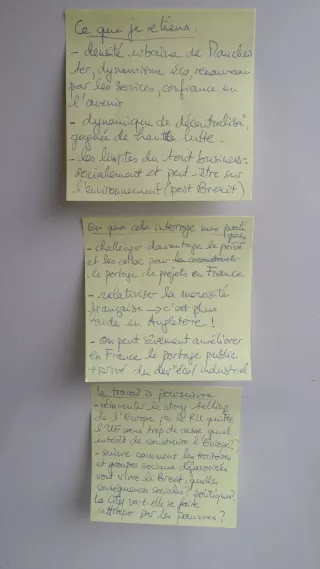 Ce que je retiens :
- densité urbaine de Manches
ter, dynamisme éco, renouveau
par les services, confiance en
l'avenir
- dynamique de décentralisa°
gagnée de haute lutte.
- les limites du tout business :
socialement et peut-être sur
l'environnement (post Brexit)
En quoi cela interroge mes prati
ques
- challenger davantage le privé
et les colloc pour la
le portage de projets en France
- relativiser la morosité
française → c'est plus
rude en Angleterre !
- on peut sûrement améliorer
en France le portage public
+ privé du dev éco/industriel
Le travail à poursuivre
- réinventer le story telling
de l'Europe : le RU quitte
l'UE sans trop de casse quel
intérêt de construire l'Europe ?
- suivre comment les territoires
et groupes sociaux défavorisés
vont vivre le Brexit : quelles
conséquences sociales, politiques
La City va-t-elle se faire
rattraper par les pauvres ?